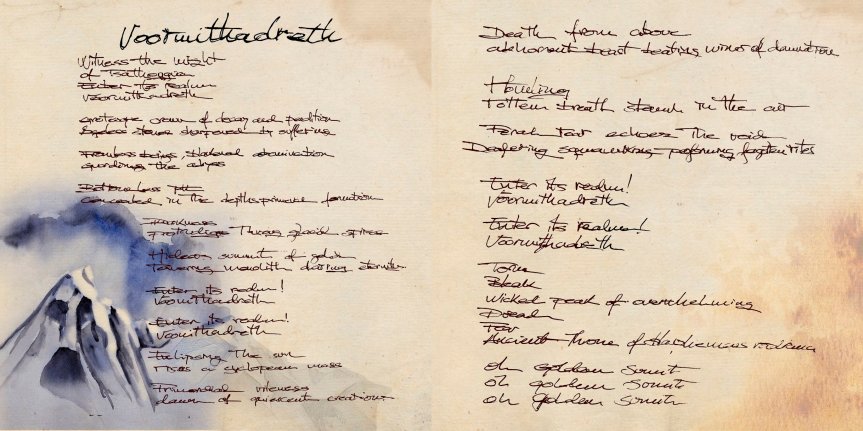 Voormithadreth
Witness the might
of Tsathoggua
Enter its realm
Voormithadreth
grotesque crown of decay and perdition
stone sharpened by suffering
Formless beings, abomination
guarding the abyss
Bottomless pit
concealed in the depths primeve formation
Darkness
Through glacial spires
Hideous summit of
Towering monolith eternity
Enter its realm!
Voormithadreth
Enter its realm!
Voormithadreth
Eclipsing The sun
rises a cyclopean mass
Primordial vileness
dawn of quiescent creations
Death from above
abhorrent beast beating wings of damnation
Howling
rotten breath stench in the air
Feral roar echoes The void
Deafening forgotten rites
Enter its realm!
Voormithadreth
Enter its realm!
Voormithadreth
Torn
Bleak
Wicked peak of overwhelming
Dread
Fear
Ancient Throne of
oh golden
oh golden
oh golden